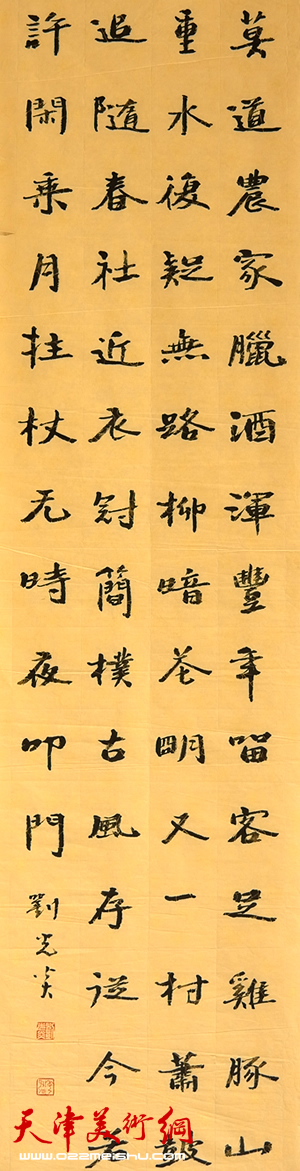 莫道農家臘酒渾豐年留客足雞豚山
重水復疑無路柳暗花明又一村蕭鼓
追隨春社近衣冠簡樸古風存從今若
許閑乘月拄杖无時夜叩門
劉光炎
天津美術網
www.022meishu.com